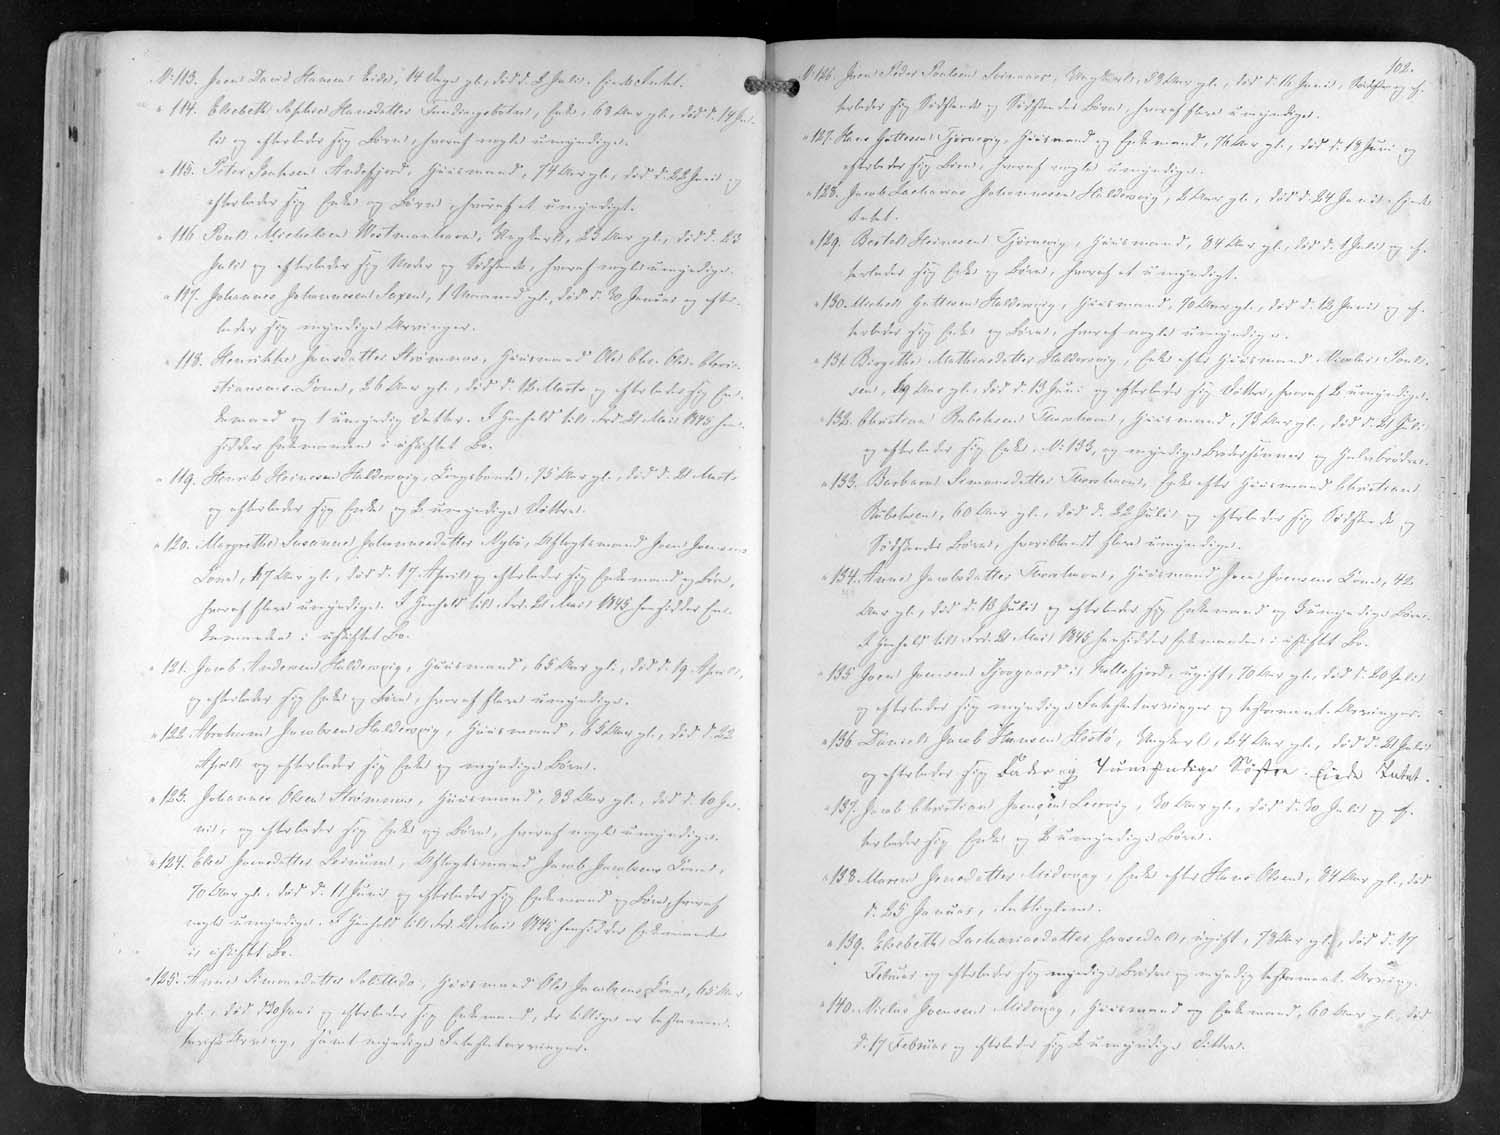 No 113. Joen David Hansen Eide, 14 Dage gl., død d. 2 Juli. Eiede Intet.
" 114. Elsebeth Sophie Hansdatter Fundingsbotn, Enke, 63 Aar gl., død d. 14 Ju-
lii og efterlader sig Børn, hvoraf nogle umyndige.
" 115. Peter Poulsen Andefjord, Huusmand, 74 Aar gl., død d. 22 Junii og
efterlader sig Enke og Børn, hvoraf et umyndigt.
" 116 Poul Michelsen Westmanhavn, Ungkarl, 23 Aar gl., død d. 23
Julii og efterlader sig Moder og Sødskende, hvoraf nogle umyndige.
" 117. Johannes Johannesen Saxen, 1 Maaned gl. død d. 30 Januar og efter-
lader sig myndige Arvinger.
" 118. Henrikke Hansdatter Strømnes, Huusmand Ole Chr. Ole Chri-
stiansens Kone, 26 Aar gl., død d. 12 Marts og efterlader sig En-
kemand og 1 umyndig Datter. I Henhold til Frd. 21 Mai 1845 hen-
sidder Enkemanden i uskiftet Bo.
" 119. Henrik Heinesen Haldersvig, Kongsbonde, 75 Aar gl., død d. 21 Marts
og efterlader sig Enke og 2 umyndige Døttre.
" 120. Margrethe Susanne Johannesdatter Nybø, Aftægtsmand Joen Joensens
Kone, 67 Aar gl., død d. 17 April og efterlader sig Enkemand og Børn,
hvoraf flere umyndige. I Henhold til Frd. 21 Mai 1845 hensidder En-
kemanden i uskiftet Bo.
" 121. Jacob Andersen Haldersvig, Huusmand, 65 Aar gl., død d. 19 April,
og efterlader sig Enke og Børn, hvoraf flere umyndige.
" 122. Abraham Jacobsen Haldersvig, Huusmand, 63 Aar gl., død d. 22
April og efterlader sig Enke og myndige Børn.
" 123. Johannes Olsen Strømnes, Huusmand, 83 Aar gl., død d. 10 Ju-
nii, og efterlader sig Enke og Børn, hvoraf nogle umyndige.
" 124. Else Joensdatter Leinum, Aftægtsmand Jacob Jacobsens Kone,
70 Aar gl., død d. 11 Junii og efterlader sig Enkemand og Børn, hvoraf
nogle umyndige. I Henhold til Frd. 21 Mai 1845 hensidder Enkemanden
i uskiftet Bo.
" 125. Anne Simonsdatter Selletræ, Huusmand Ole Jacobsens Kone, 65 Aar
gl., død d 30 Juni og efterlader sig Enkemand, der tillige er testamen-
tarisk Arving, samt myndige Intestatarvinger.
102.
No 126. Joen Peder Poulsen Svinaaer, Ungkarl, 52 Aar gl., død d. 16 Junii, Sødskende og ef-
terlader sig Sødskende og Sødskendes Børn, hvoraf flere umyndige.
" 127. Hans Guttesen Tjørnevig, Huusmand og Enkemand, 76 Aar gl., død d. 13 Juni og
efterlader sig Børn, hvoraf nogle umyndige.
" 128. Jacob Zacharias Johannesen Haldersvig, 2 Aar gl., død d. 24 Junii. Eiede
Intet.
" 129. Bertel Heinesen Tjørnevig, Huusmand, 84 Aar gl., død d. 1 Julii og ef-
terlader sig Enke og Børn, hvoraf et umyndigt.
" 130. Michel Guttesen Haldersvig, Huusmand, 70 Aar gl., død d. 12 Junii og ef-
terlader sig Enke og Børn, hvoraf nogle umyndige.
" 131. Birgitte Mathiasdatter Haldersvig, Enke efter Huusmand Nicolai Poul-
sen, 49 Aar gl., død d. 13 Juni og efterlader sig Døttre, hvoraf 2 umyndige.
" 132. Christian Rubeksen Thorshavn, Huusmand, 73 Aar gl., død d. 21 Juli,
og efterlader sig Enke, No 133, og myndige Brodersønner og Halvbrødre.
" 133. Barbara Simonsdatter Thorshavn, Enke efter Huusmand Christian
Rubeksen, 60 Aar gl., død d. 22 Julii og efterlader sig Sødskende og
Sødskendes Børn, hvoriblandt flere umyndige.
" 134. Anne Jacobsdatter Thorshavn, Huusmand Joen Joensens Kone, 42
Aar gl., død d. 18 Julii og efterlader sig Enkemand og 3 umyndige Børn.
I Henhold til Frd. 21 Mai 1845 hensidder Enkemanden i uskiftet Bo.
" 135 Joen Joensen Skovgaard i Kollefjord, ugift, 70 Aar gl., død d. 20 Julii
og efterlader sig myndige Intestatarvinger og testament. Arvinger.
" 136. Daniel Jacob Hansen Hestø, Ungkarl, 24 Aar gl., død d. 21 Julii
og efterlader sig Fader og 4 umyndige Søstre. Eiede Intet.
" 137. Jacob Christian Joensen Leervig, 30 Aar gl., død d. 30 Julii og ef-
terlader sig Enke og 2 umyndige Børn.
" 138. Maren Joensdatter Midvaag, Enke efter Hans Olsen, 84 Aar gl., død
d. 25 Januar, Fattiglem.
" 139. Elsebeth Zachariasdatter Saxedal, ugift, 78 Aar gl., død d. 17
Februar og efterlader sig myndige Brødre og myndig testament. Arving.
" 140. Niclas Joensen Midvaag, Huusmand og Enkemand, 60 Aar gl., død
d. 17 Februar og efterlader sig 2 umyndige Døttre.